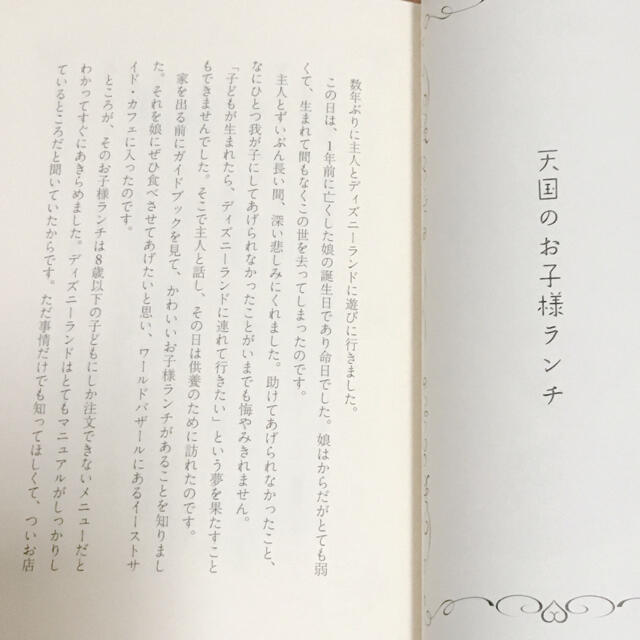 天国のお子様ランチ
数年ぶりに主人とディズニーランドに遊びに行きました。
この日は、1年前に亡くした娘の誕生日であり命日でした。娘はからだがとても弱
くて、生まれて間もなくこの世を去ってしまったのです。
主人とずいぶん長い間、深い悲しみにくれました。助けてあげられなかったこと、
なにひとつ我が子にしてあげられなかったことがいまでも悔やみきれません。
「子どもが生まれたら、ディズニーランドに連れて行きたい」という夢を果たすこと
もできませんでした。そこで主人と話し、その日は供養のために訪れたのです。
家を出る前にガイドブックを見て、かわいいお子様ランチがあることを知りまし
た。それを娘にぜひ食べさせてあげたいと思い、ワールドバザールにあるイーストサ
イド・カフェに入ったのです。
ところが、そのお子様ランチは8歳以下の子どもにしか注文できないメニューだと
わかってすぐにあきらめました。ディズニーランドはとてもマニュアルがしっかりし
ているところだと聞いていたからです。ただ事情だけでも知ってほしくて、ついお店